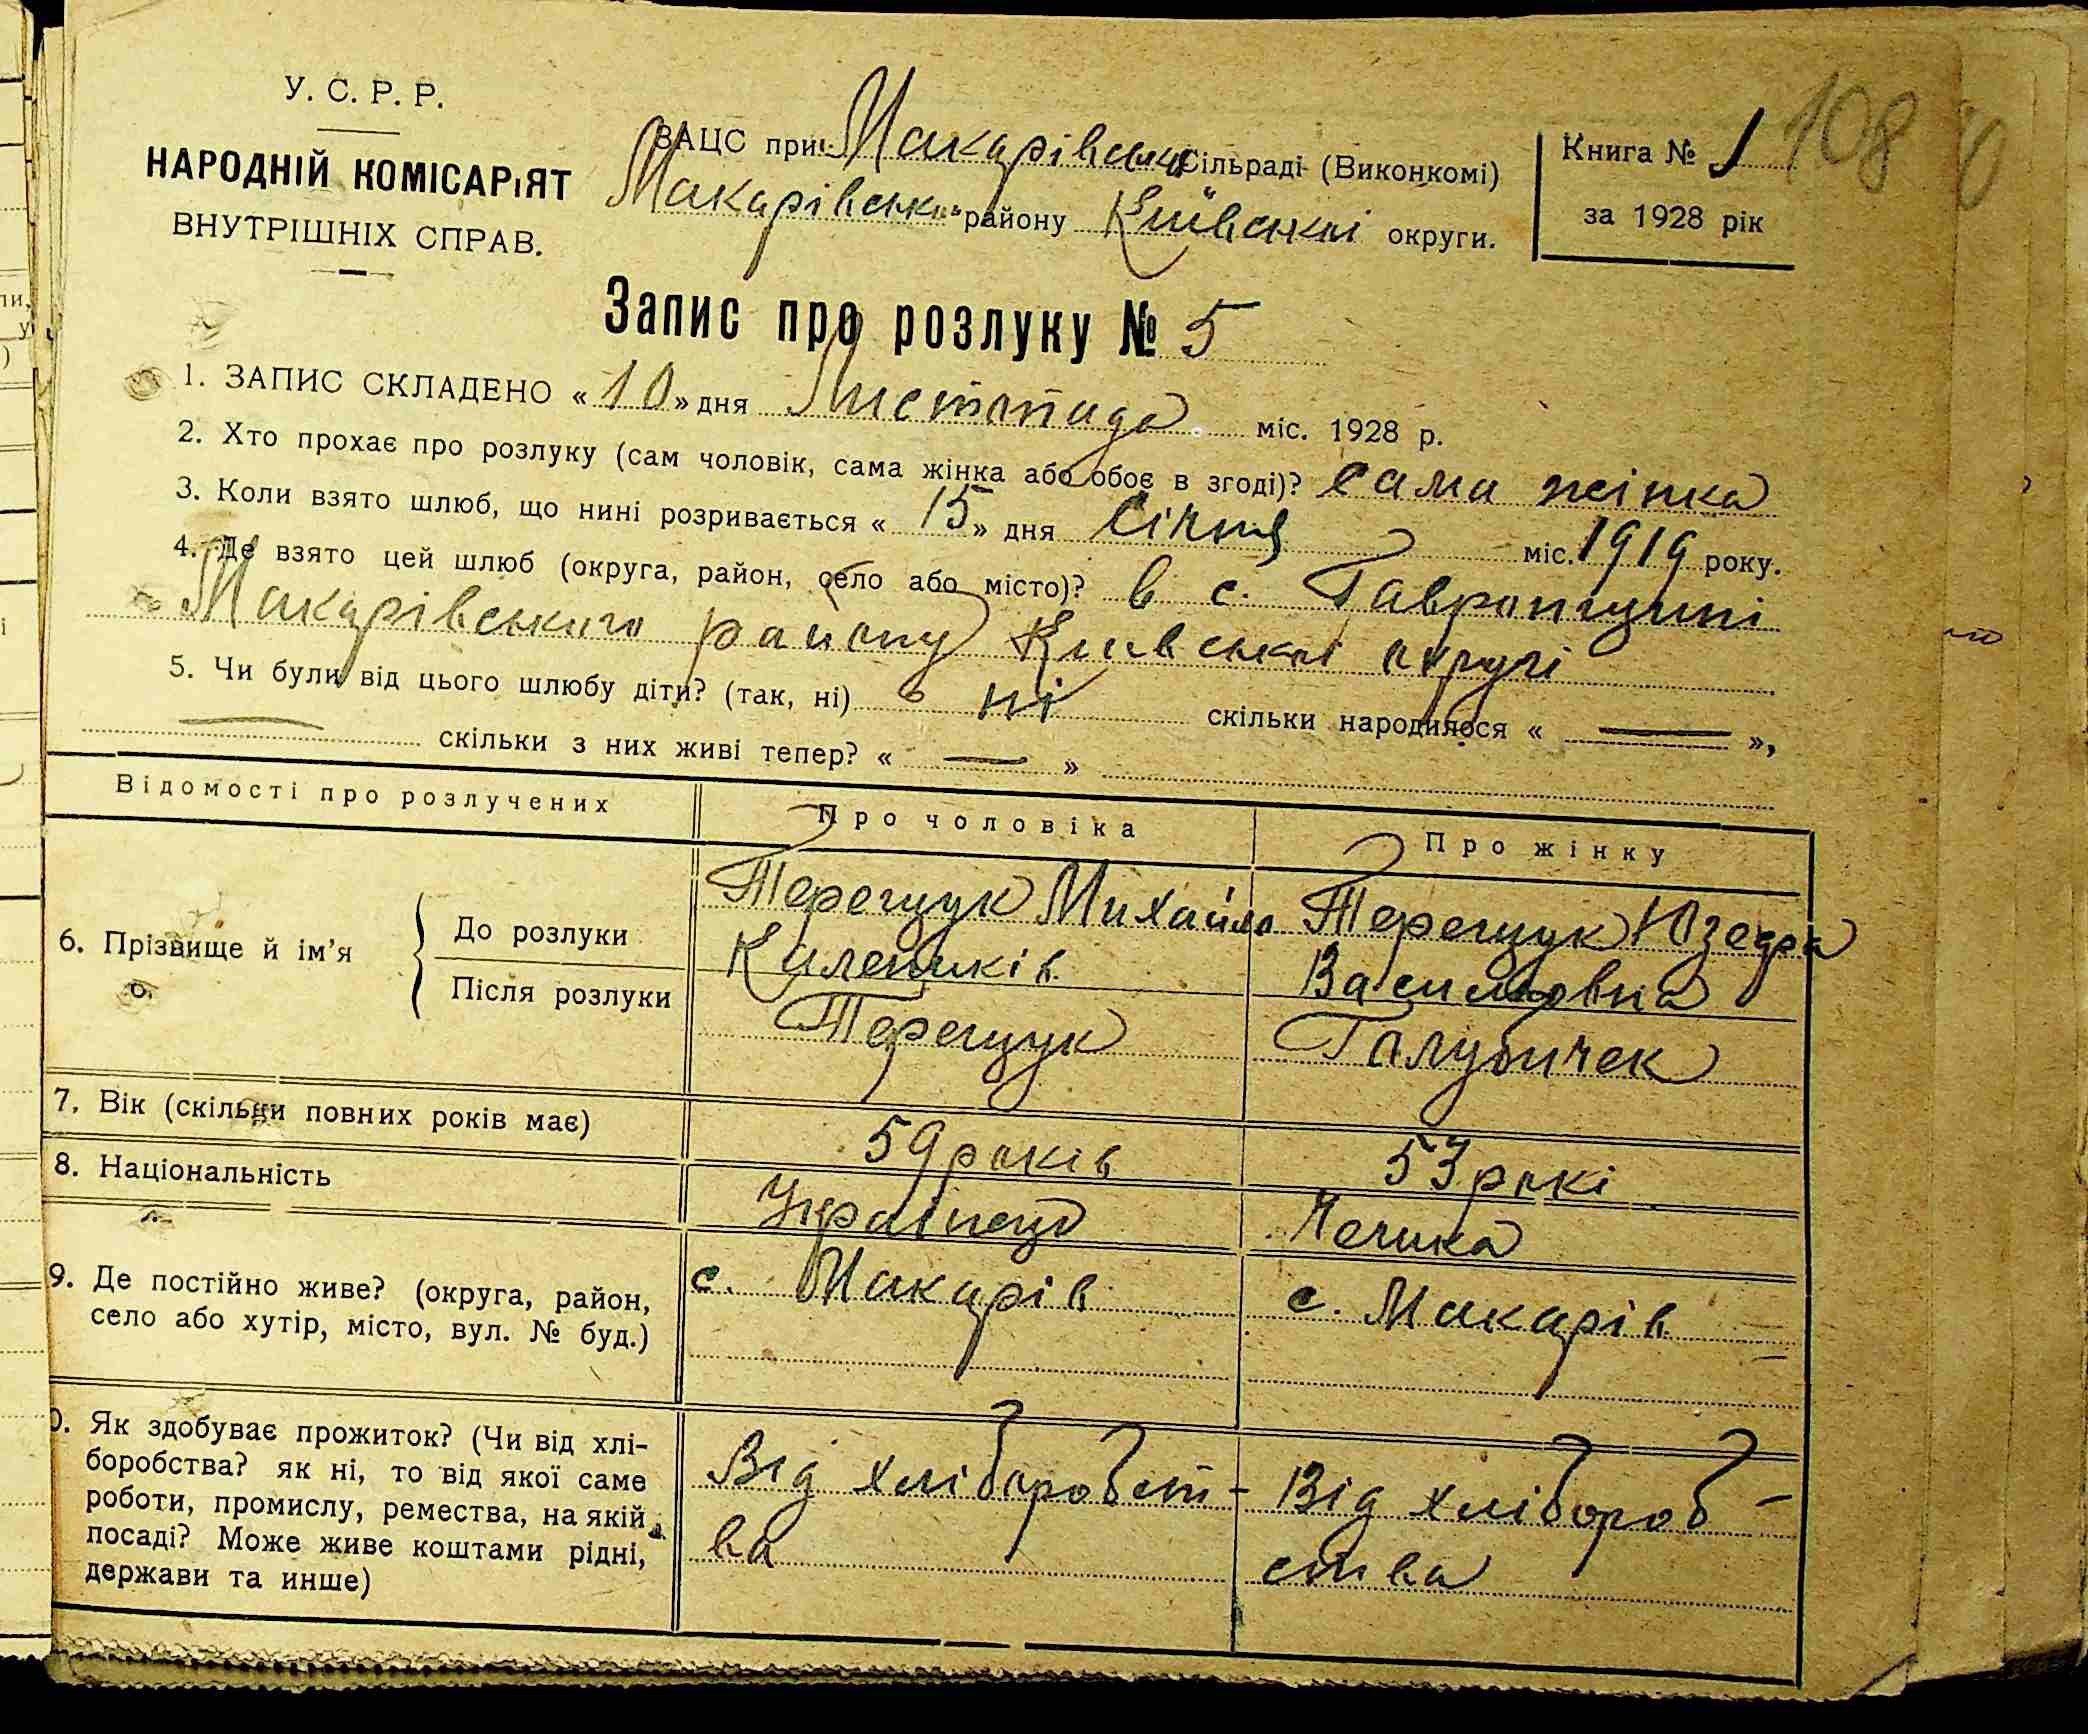 У. С. Р. Р.
НАРОДНІЙ КОМІСАРІЯТ
ВНУТРІШНІХ СПРАВ.
ЗАЦС при Макарівській Сільраді (Виконкомі)
Макарівського району Київської округи.
Книга № 1
за 1928 рік
108
Запис про розлуку № 5
1. ЗАПИС СКЛАДЕНО « 10 » дня Листопада міс. 1928 р.
2. Хто прохає про розлуку (сам чоловік, сама жінка або обоє в згоді)? сама жінка
3. Коли взято шлюб, що нині розривається « 15 » дня Січня міс. 1919 року.
4. Де взято цей шлюб (округа, район, село або місто)? в с. Гавронщині
Макарівського району Київської округі
5. Чи були від цього шлюбу діти? (так, ні) ні скільки народилося « — »,
— скільки з них живі тепер? « — »
Відомості про розлучених
Про чоловіка
Про жінку
6. Прізвище й ім'я
До розлуки
Після розлуки
Терещук Михайло
Терещук Юзефа
Василовна
Терещук
Голубичек
7. Вік (скільки повних років має)
59 років
53 рокі
8. Національність
Українец
Чешка
9. Де постійно живе? (округа, район,
село або хутір, місто, вул. № буд.)
с. Макарів
с. Макарів
0. Як здобуває прожиток? (Чи від хлі-
боробства? як ні, то від якої саме
роботи, промислу, ремества, на якій
посаді? Може живе коштами рідні,
держави та инше)
Від хліборобст-
ва
Від хлібороб-
ства